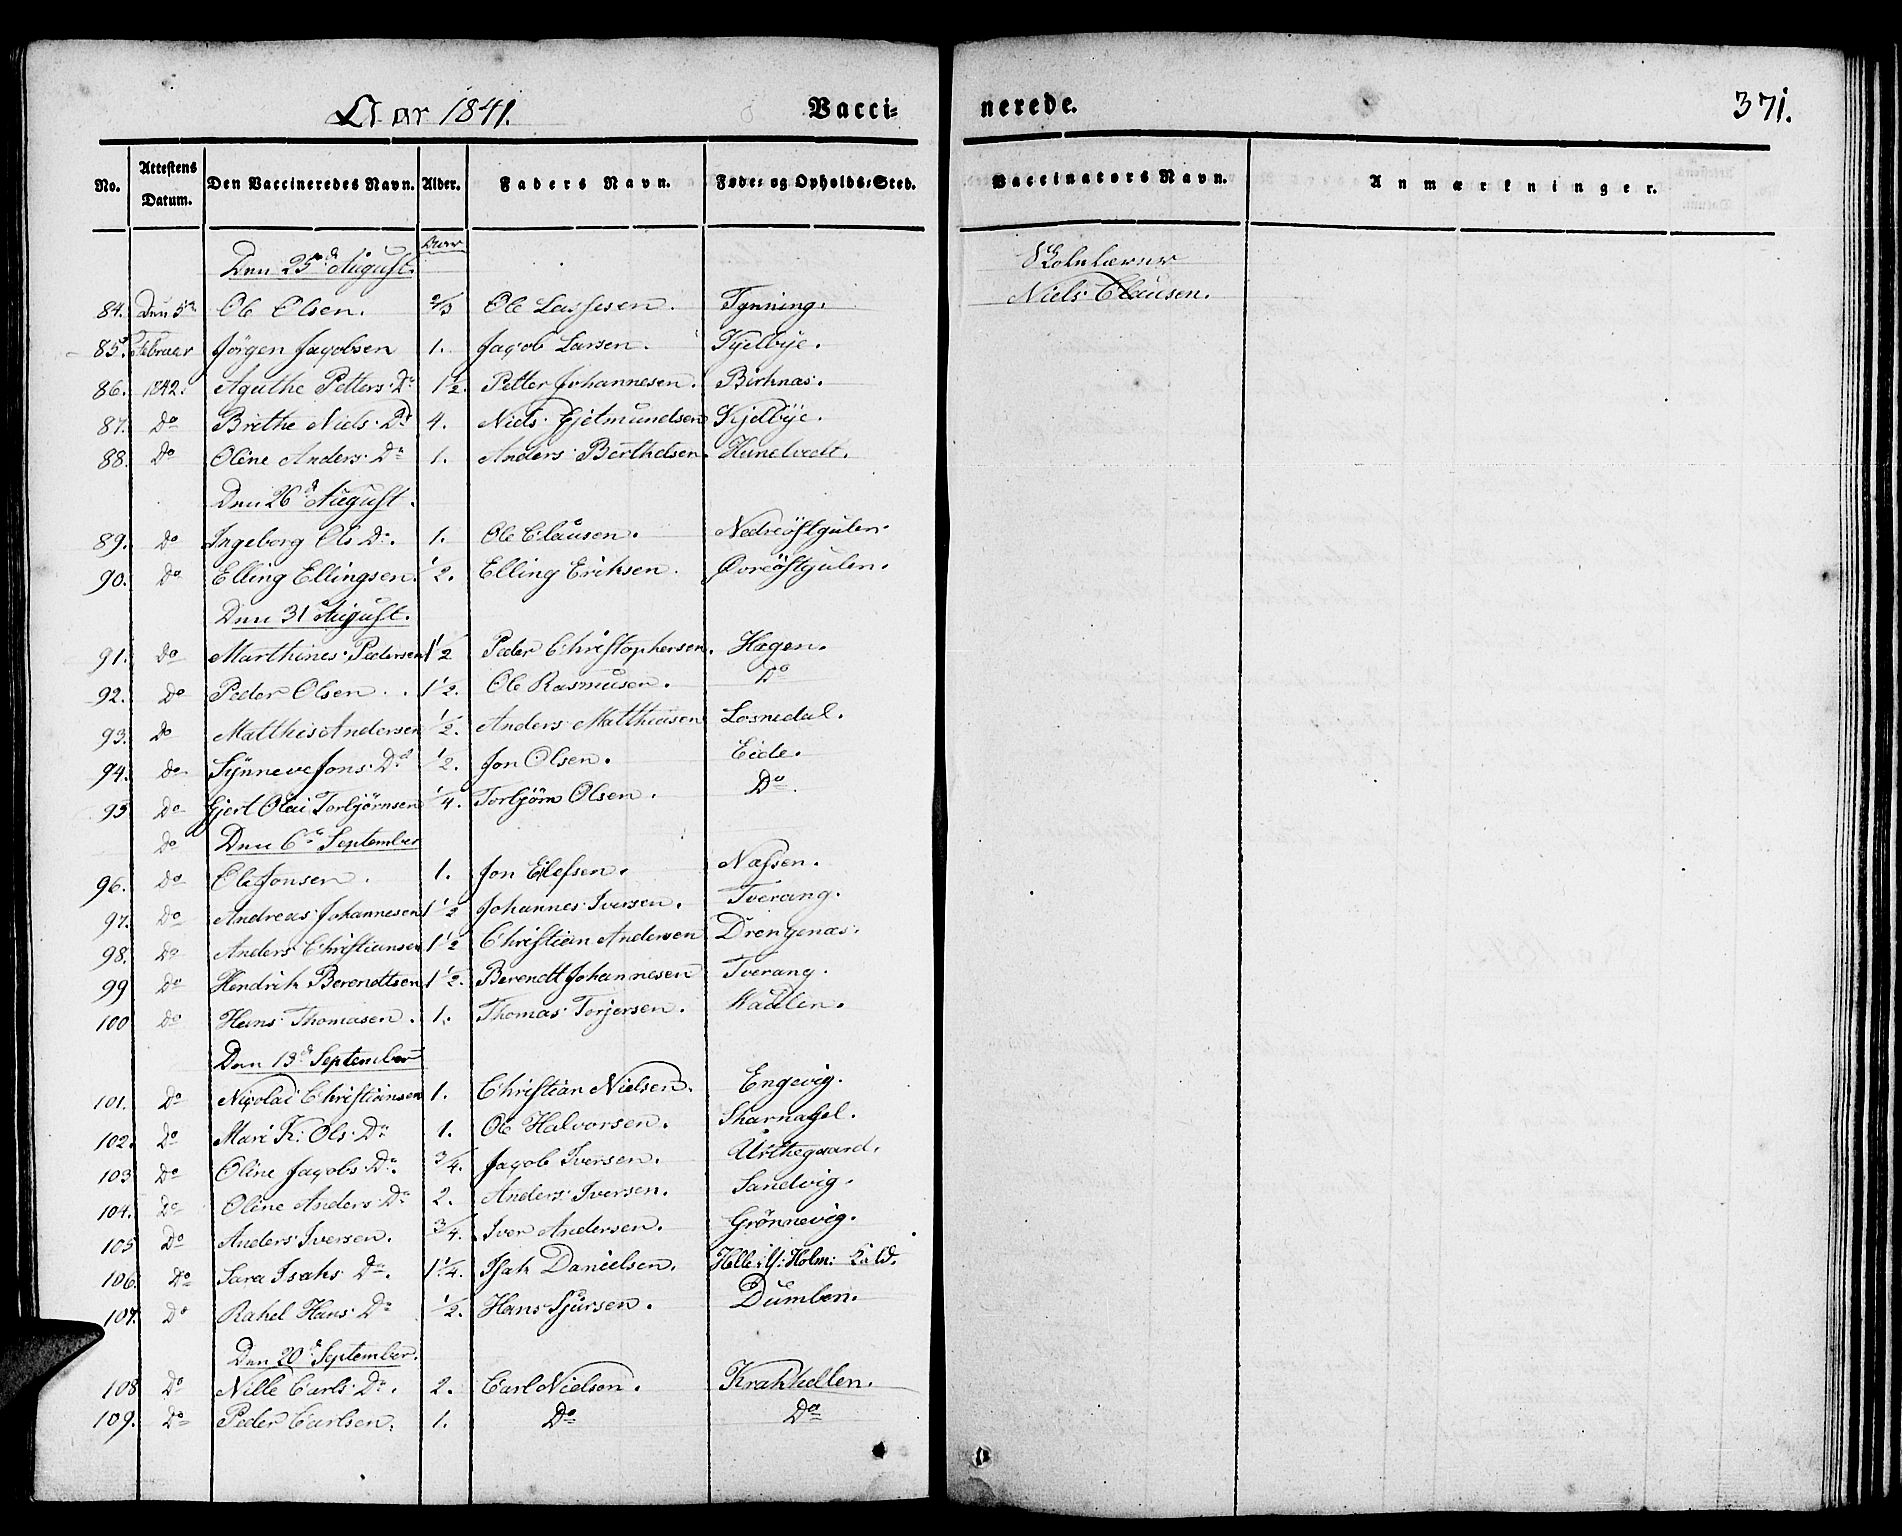 Aar 1841. Vacci= nerede. 371.
No. Attestens Datum. Den Vaccineredes Navn. Alder. Faders Navn. Føde= og Opholds=Sted. Vaccinators Navn. Anmærkninger.
Aar
Den 25de August. Skolelærer
84. Den 5te Ole Olsen. 2/3 Ole Lassesen. Tynning. Niels Clausen.
85. Februar Jörgen Jacobsen 1. Jacob Larsen. Kjelbÿe.
86. 1842. Agathe Petters Dr 1 1/2. Petter Johannesen. Birknæs.
87. Do Brithe Niels Dr 4. Niels Gjetmundsen Kjelbÿe.
88. Do Oline Anders Dr 1. Anders Berthelsen. Hunelvedt.
Den 26d August.
89. Do Ingeborg Ols Dr. 1. Ole Clausen. Nedreöstgulen.
90. Do Elling Ellingsen. 1/2. Elling Eriksen. Övreöstgulen.
Den 31 August.
91. Do Marthines Pedersen 1 1/2 Peder Christophersen. Hagen.
92. Do Peder Olsen. 1 1/2. Ole Rasmusen. Do
93. Do Matthis Andersen 1/2. Anders Matthiasen Losnedal.
94. Do Sÿnneve Jons Dr 1/2. Jon Olsen. Eide.
95 Do Gjert Olai Torbjörnsen 1/4. Torbjörn Olsen. Do.
Do Den 6te September
96. Do Ole Jonsen. 1. Jon Elefsen. Næssen.
97. Do Andreas Johannesen 1 1/2 Johannes Iversen. Tverang.
98. Do Anders Christiansen 1 1/2 Christian Andersen Drengenæs.
99 Do Hendrik Berendtsen 1 1/2. Berendt Johannesen Tverang.
100 Do Hans Thomasen. 1. Thomas Torjersen. Kaalen.
Den 13d September
101. Do Nicolai Christiansen 1. Christian Nielsen. Engevig.
102. Do Mari K: Ols Dr 1. Ole Halvorsen. Skarnagel.
103 Do Oline Jacobs Dr. 3/4. Jacob Iversen. Urthegaard.
104. Do Oline Anders Dr 2. Anders Iversen. Sandvig.
105 Do Anders Iversen. 3/4. Iver Andersen. Grönnevig.
106. Do Sara Isaks Dr. 1 1/4. Isak Danielsen. Helle i Y: Holm:
107. Do Rakel Hans Dr 1/2. Hans Sjursen. Dumben.
Den 20d September.
108 Do Nille Carls Dr. 2. Carl Nielsen. Krakhellen.
109. Do Peder Carlsen. 1. Do Do